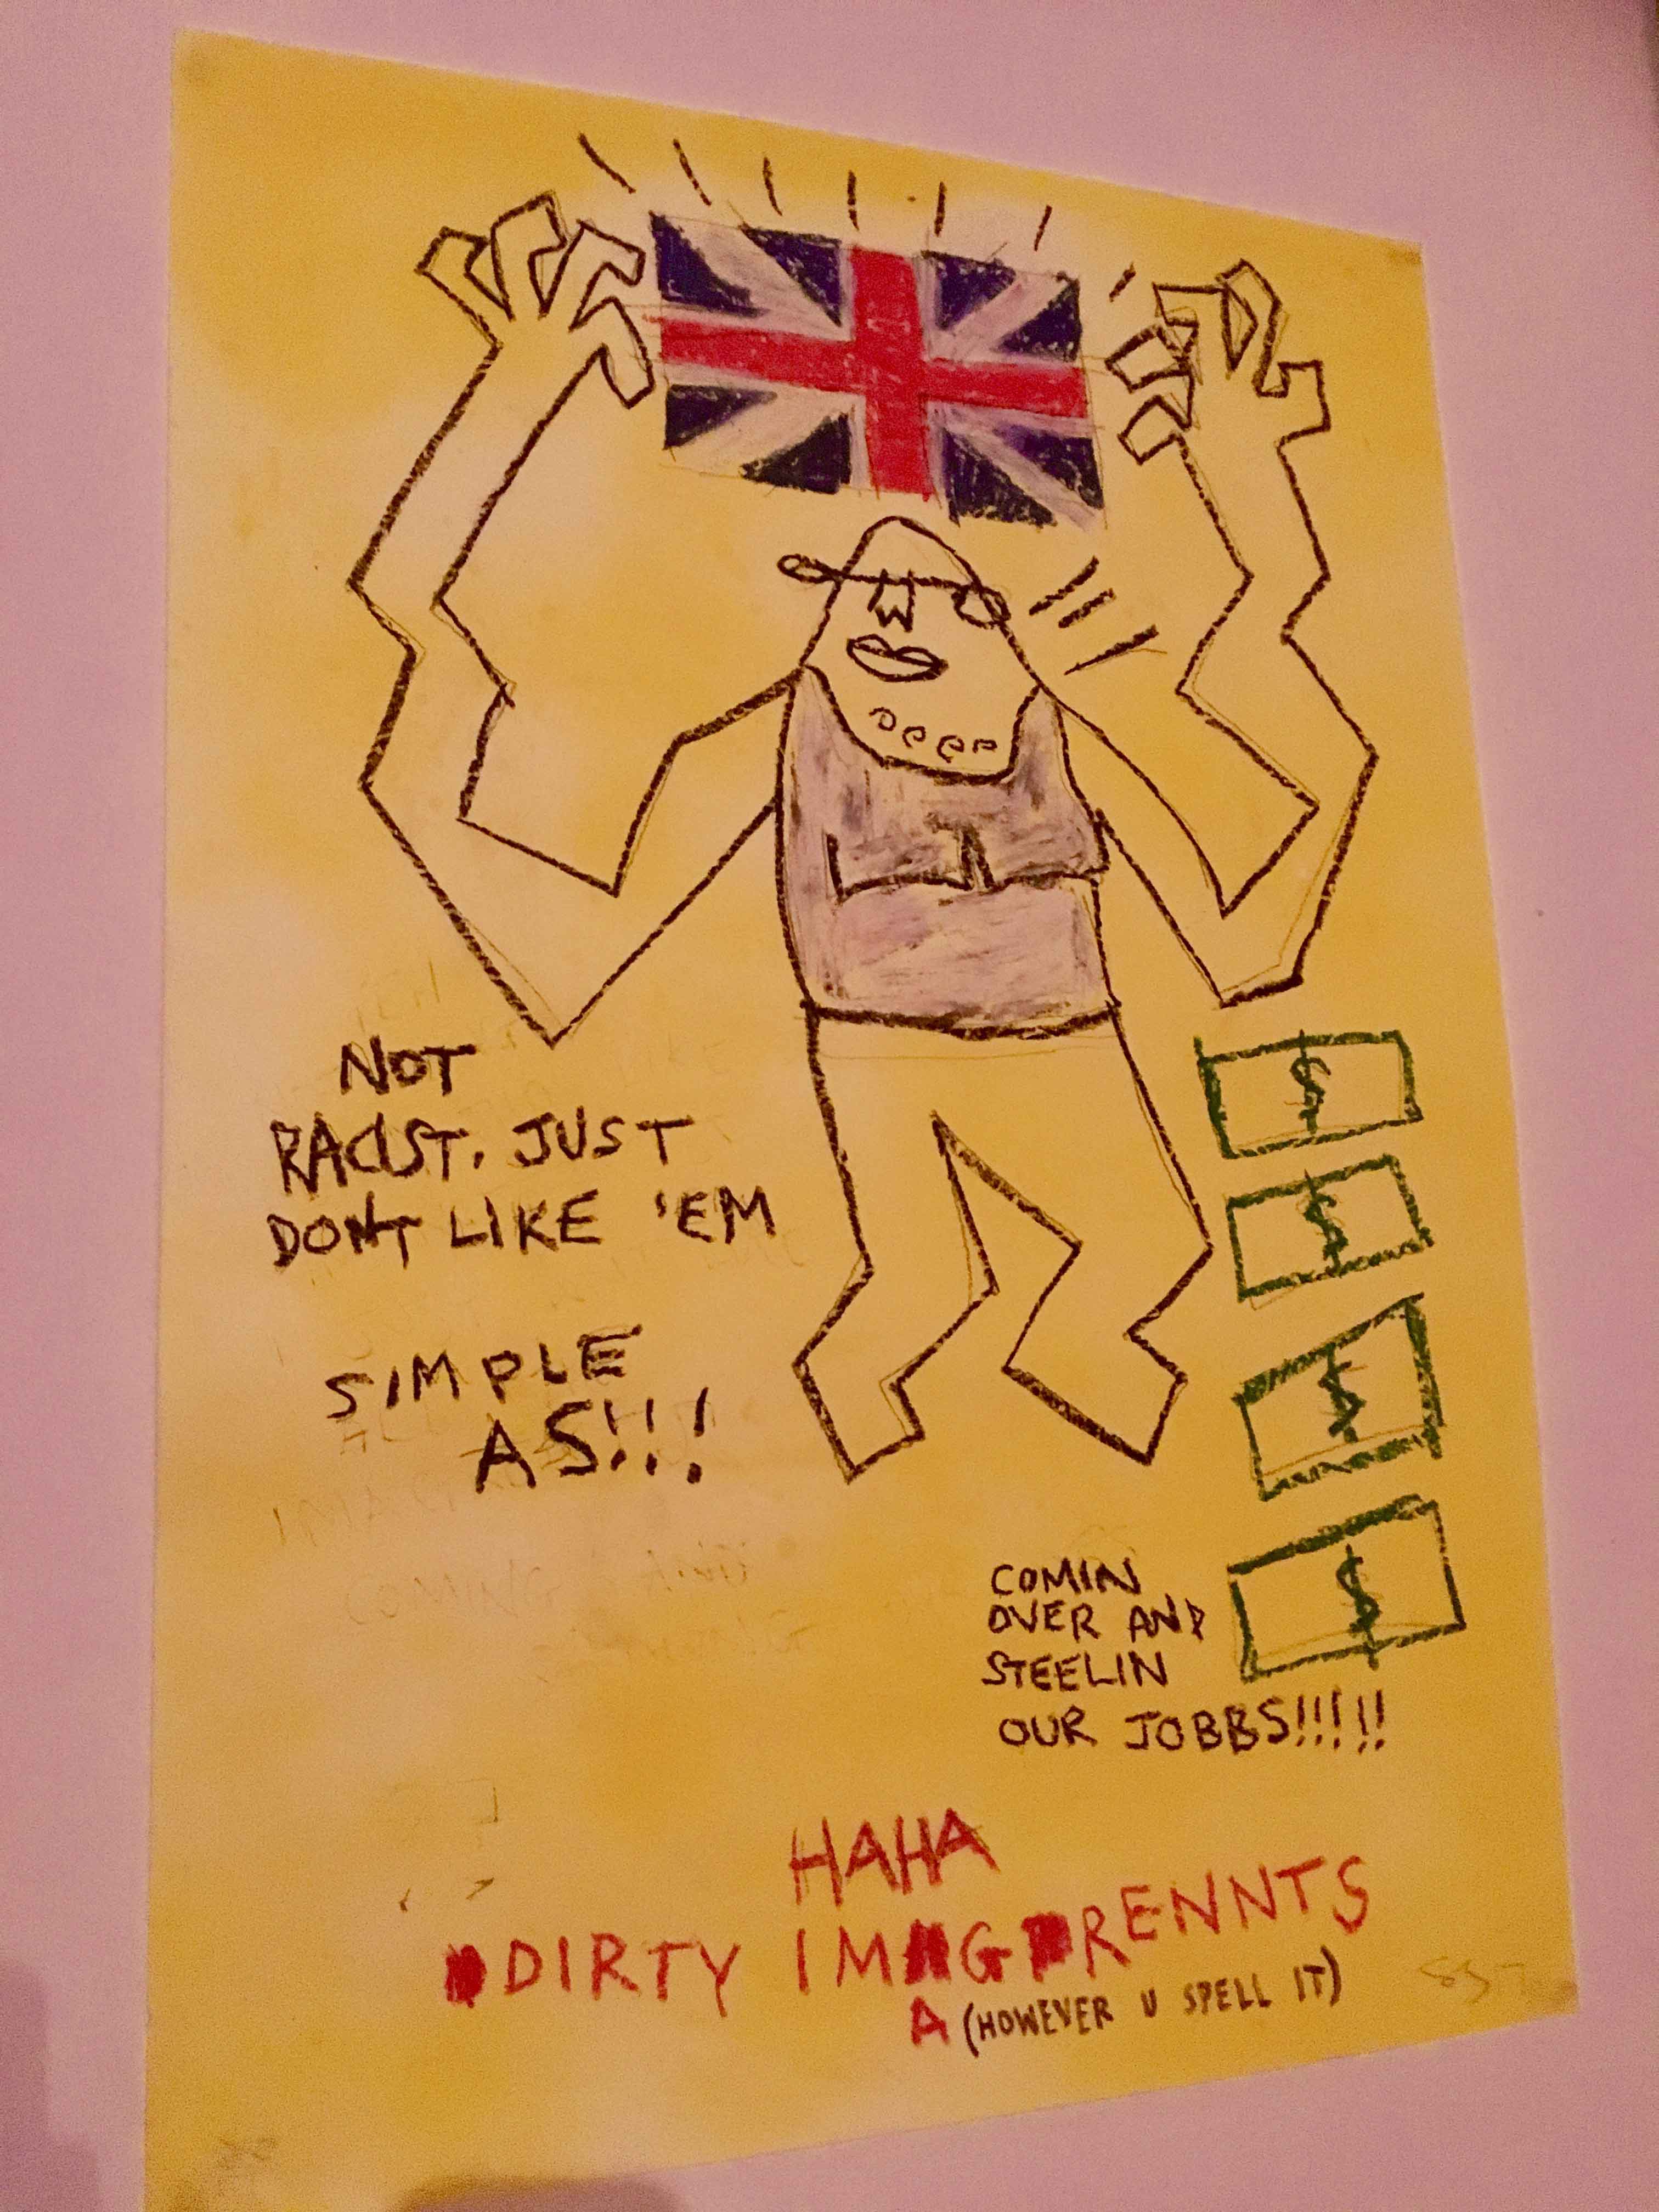 NOT
RACIST. JUST
DONT LIKE 'EM
SIMPLE
AS!!!
$
$
$
$
COMIN
OVER AND
STEELIN
OUR JOBBS!!!!!
HAHA
DIRTY IMGRENNTS
A (HOWEVER U SPELL IT)